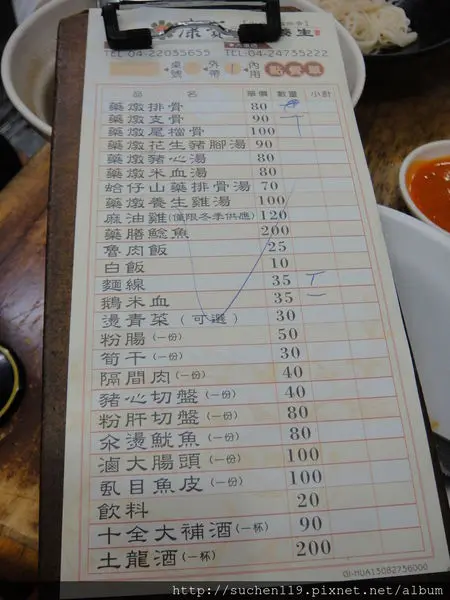 康
養生
TEL-04.22035655 TEL-04-24735222
桌號 外帶 內用 點餐單
品名 單價 數量 小計
藥燉排骨 80
藥燉支骨 90 T
藥燉尾擋骨 100
藥燉花生豬腳湯 90
藥燉豬心湯 80
藥燉米血湯 80
蛤仔山藥排骨湯 70
藥燉養生雞湯 100
麻油雞(僅限冬季供應) 120
藥膳鯰魚 200
魯肉飯 25
白飯 10
麵線 35 T
鵝米血 35 一
燙青菜(可選) 30
粉腸(一份) 50
筍干(一份) 30
隔間肉(一份) 40
豬心切盤(一份) 40
粉肝切盤(一份) 80
汆燙魷魚(一份) 80
滷大腸頭(一份) 100
虱目魚皮(一份) 100
飲料 20
十全大補酒(一杯) 90
土龍酒(一杯) 200
01-HUA13082736000
http://suchen119.pixnet.net/album